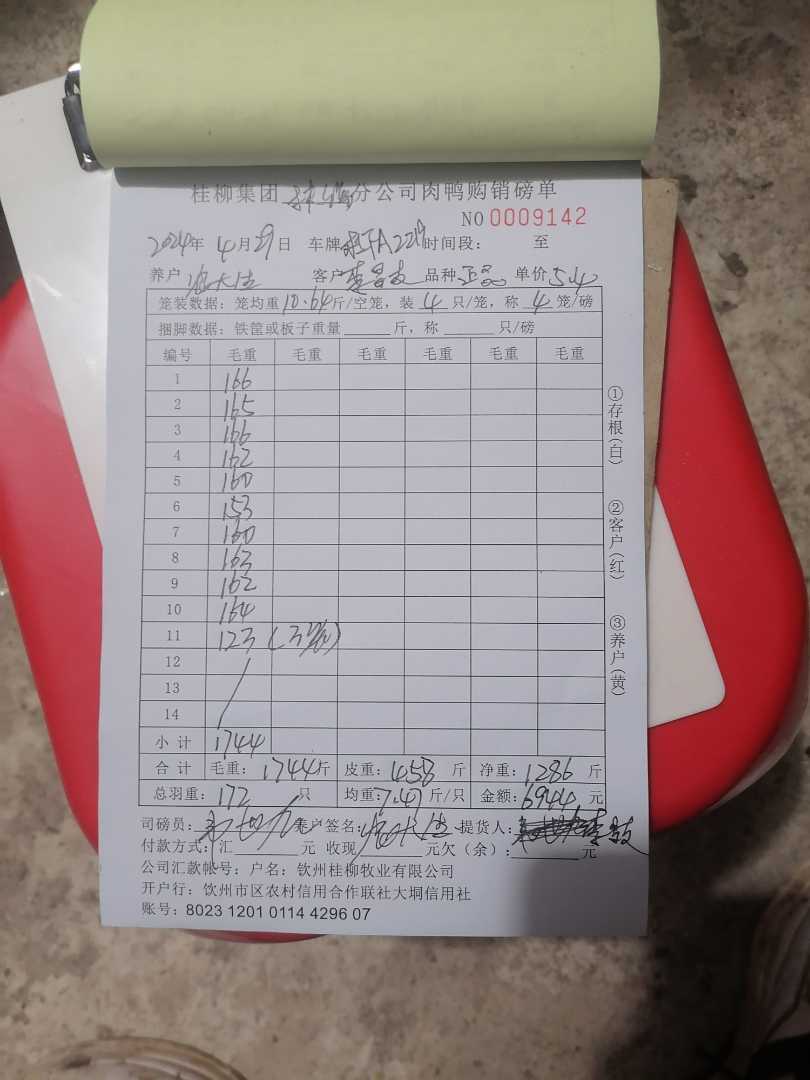 桂柳集团 分公司肉鸭购销磅单
NO 0009142
2024年 4月29日 车牌 时间段： 至
养户 客户 品种 正品 单价 5.4
笼装数据：笼均重10.64斤/空笼，装 4 只/笼，称 4 笼/磅
捆脚数据：铁筐或板子重量 斤，称 只/磅
编号 毛重 毛重 毛重 毛重 毛重 毛重
1 166
2 165
3 166
4 162
5 160
6 153
7 160
8 163
9 162
10 164
11 123 (3笼)
12
13
14
小计 1744
合计 毛重：1744斤 皮重：458 斤 净重：1286 斤
总羽重：172 只 均重：7.47斤/只 金额：6944 元
司磅员： 养户签名： 提货人：
付款方式：汇 元 收现 元欠（余）： 元
公司汇款帐号：户名：钦州桂柳牧业有限公司
开户行：钦州市区农村信用合作联社大垌信用社
账号：8023 1201 0114 4296 07
①存根（白）
②客户（红）
③养户（黄）